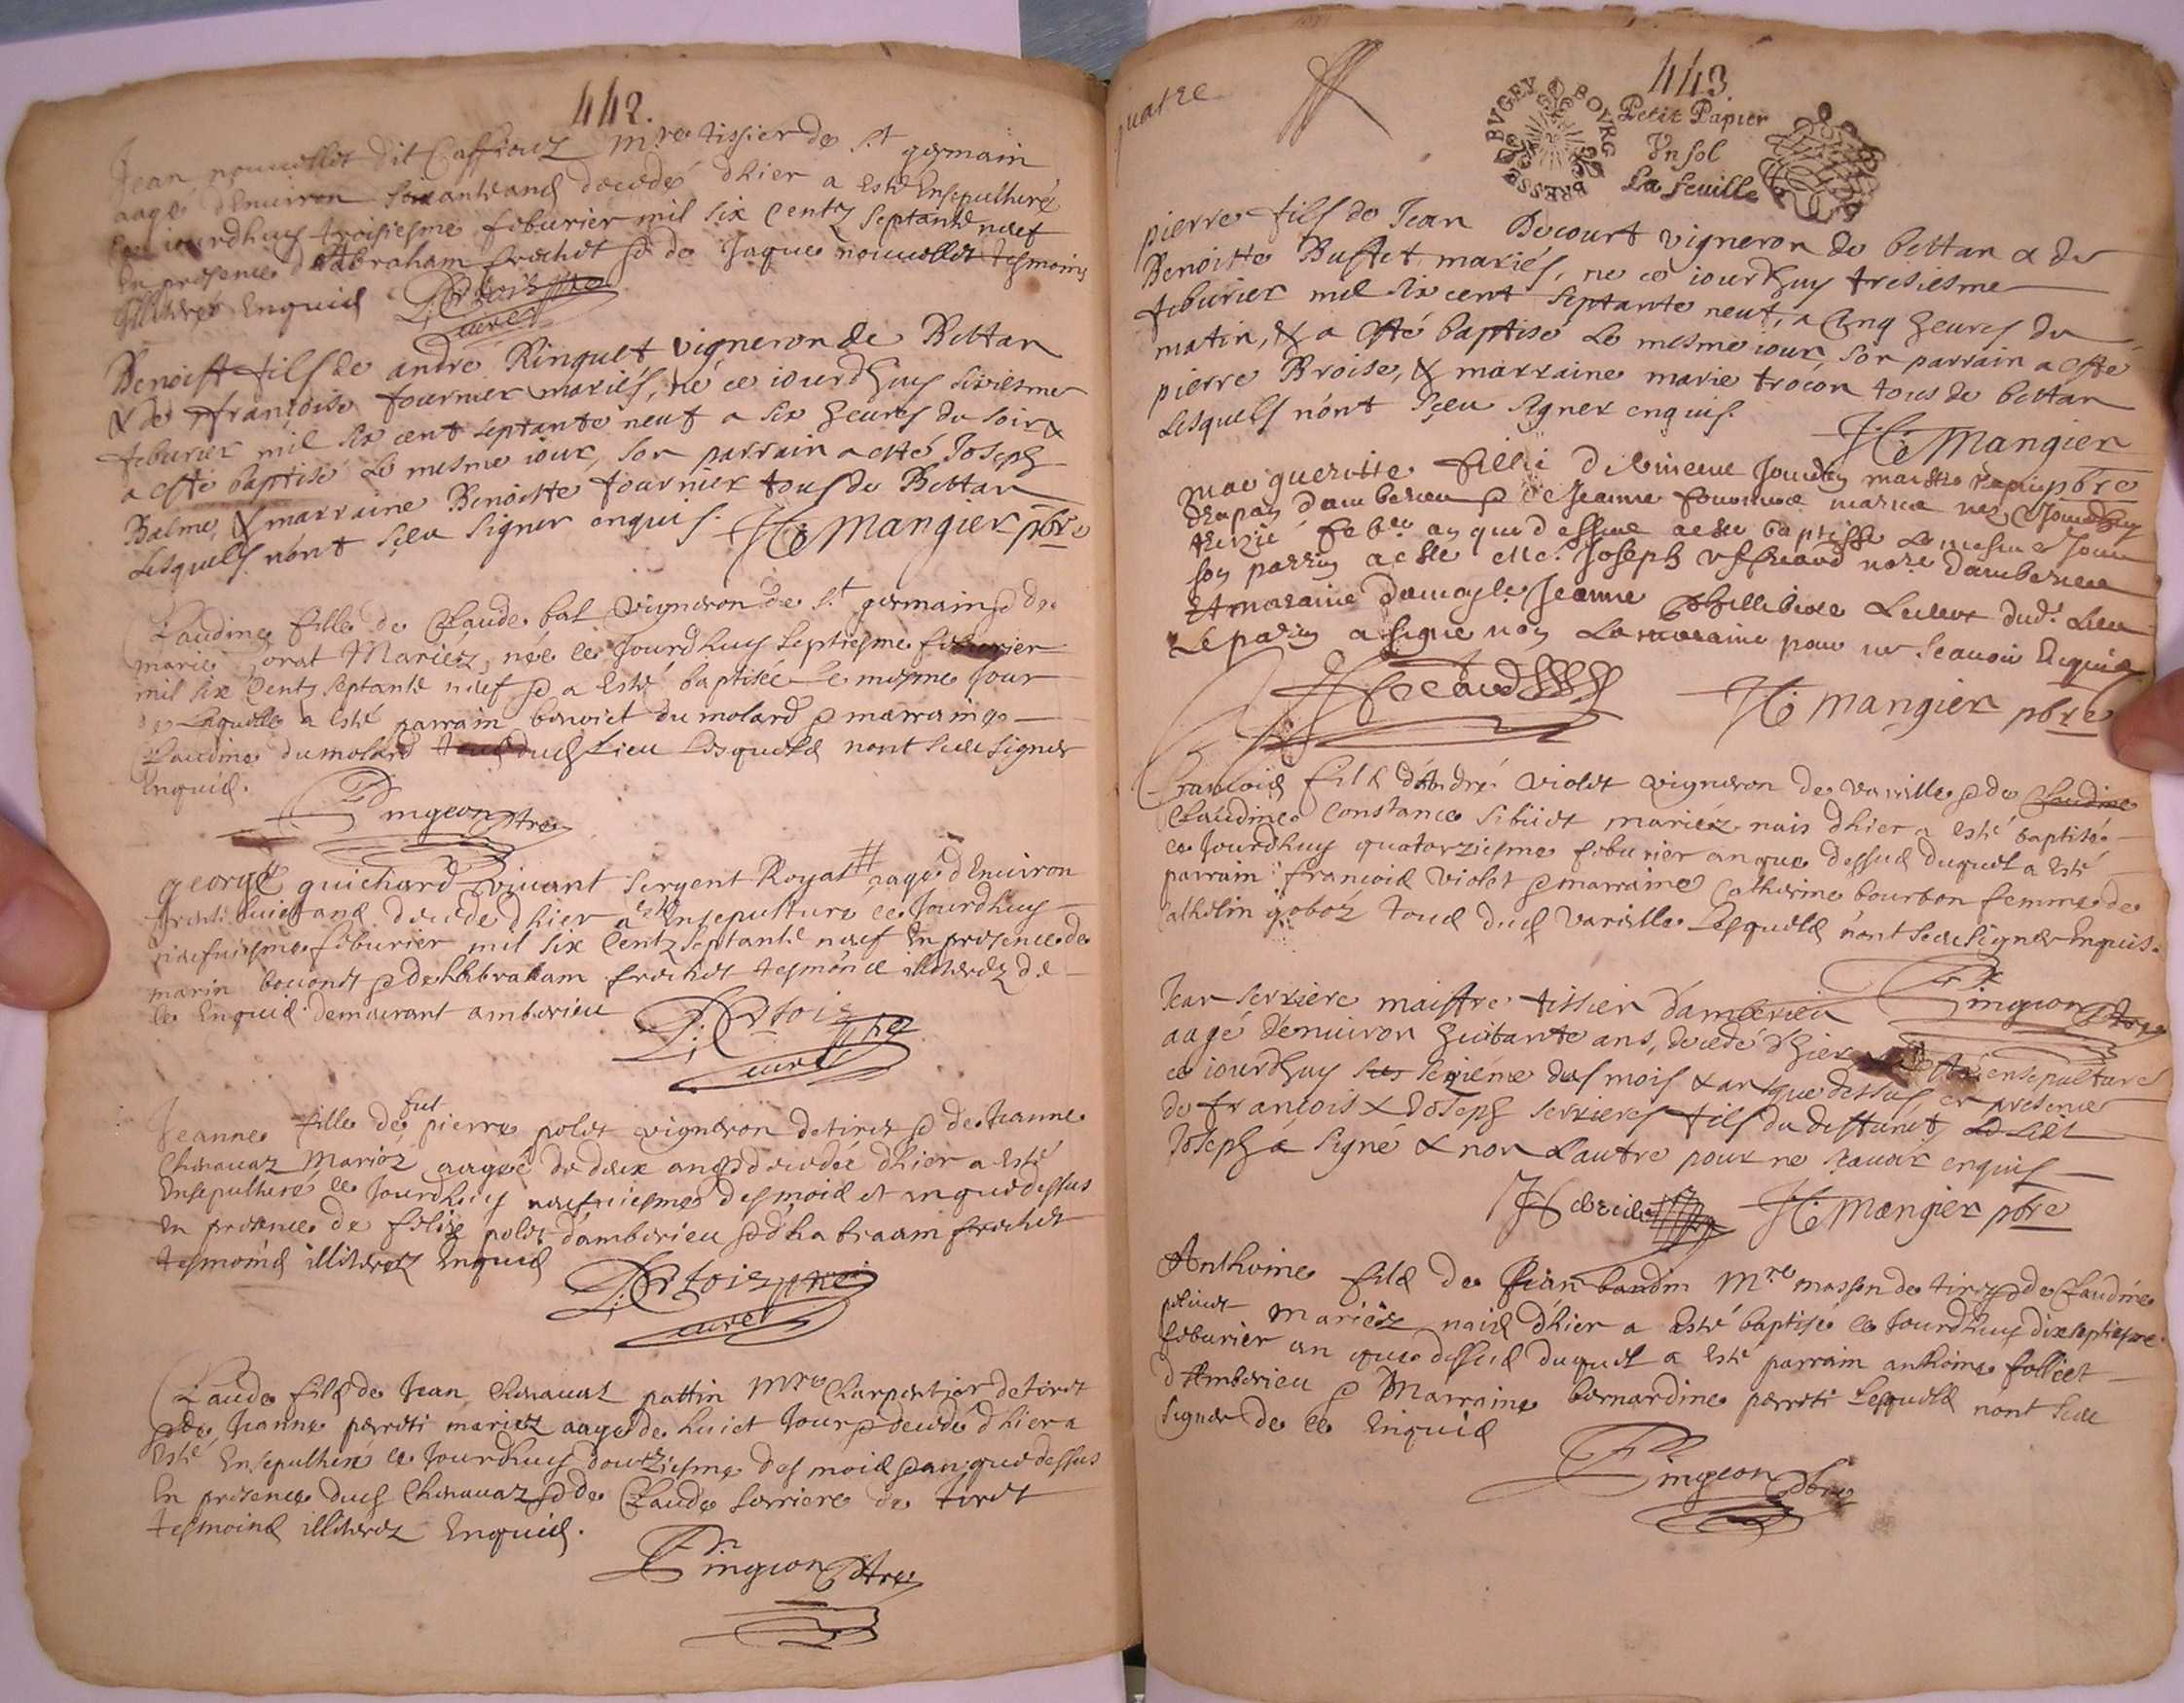 442.
Jean nouvellet dit Caffiouz Mre tissier de St germain
aagé denuiron soixante ans decedé dhier a esté Ensepulturé
ce iourdhuy troisiesme feburier mil six Centz septante neuf
En presence d'Abraham frochet & de Jaque nouuellet tesmoins
Illiterés Enquis D. Ortois ptre
curé
Benoist fils de andré Ringuet vigneron de Bettan
& de françoise fournier mariés, né ce iourdhuy sixiesme
feburier mil six cent septante neuf a six heures du soir &
a esté baptisé le mesme iour, son parrain a esté Joseph
Balme, & marraine Benoitte fournier tous de Bettan
Lesquels n'ont sçeu signer enquis. H. Mangier pbre
Claudine fille de Claude bal vigneron de St germain & de
marie orat Mariéz, née ce Jourdhuy septiesme feburier
mil six Centz septante neuf & a esté baptisée le mesme Jour
de Laquelle a esté parrain benoict du molard & marraine
Claudine du molard tous dud Lieu Lesquels nont sceu signer
Enquis.
Pingeon ptre
george guichard viuant sergent Royal # aagé dEnuiron
trente huict ans decedé dhier a esté Ensepulturé ce Jourdhuy
neufuiesme feburier mil six Centz septante neuf En presence de
marin bouont & dehabraham frochet tesmoins illiterez de
ce Enquis demeurant amberieu D. Ortois ptre
curé
Jeanne fille de fut pierre polet vigneron de tiret & de Jeanne
Chenauaz Mariéz aagée de deux ans & decedée dhier a esté
Ensepulturé ce Jourdhuy neufuiesme des mois et an que dessus
En presence de felix polet d'amberieu & d'habraam frochet
tesmoins illiterez Enquis D. Ortois ptre
curé
Claude fils de Jean Chenauaz pattin Mre Charpentier de tiret
& de Jeanne perreti mariez aagé de huict Jour & decedé dhier a
esté Ensepulturé ce Jourdhuy douziesme des mois & an que dessus
En presence dud Chenauaz & de Claude serriere de tiret
tesmoins illiterez Enquis.
Pingeon ptre
quatre
443.
BRESSE BVGEY BOVRG
Petit Papier
Vn sol
La feuille
pierre fils de Jean Decourt vigneron de bettan & de
Benoitte Buffet mariés, né ce iourdhuy tresiesme
feburier mil six cent septante neuf, a Cinq heures du
matin, & a esté baptisé le mesme iour, son parrain a esté
pierre Broise, & marraine marie trocon tous de bettan
Lesquels n'ont sçeu signer enquis.
H. Mangier
pbre
marguerite fillie maistre
drapan damberieu & de Jeanne
an que dessus a esté baptisse le mesme Jour
son parrin a esté Joseph damberieu
Et maraine damoyle Jeanne dud. Lieu
Le parin a signe non La maraine pour ne scauoir Enquis
H. mangier pbre
francois fils d'André violet vigneron de vareille & de Claudine
Claudine Constance sibuet mariéz nais dhier a esté baptisé
ce Jourdhuy quatorziesme feburier an que dessus duquel a esté
parrain francois violet & marraine Catherine bourbon femme de
Cathelin goboz tous dud vareille Lesquels n'ont sceu signer Enquis.
Pingeon ptre
Jean serriere maistre tissier damberieu
aagé denuiron huitante ans, decedé dhier a esté ensepulturé
ce iourdhuy ses seziéme des mois & an que dessus en presence
de françois & Joseph serrieres fils du deffunct Led
Joseph a signé & non Lautre pour ne sçauoir enquis
H. Mangier pbre
Anthoine fils de Jean baudin Mre masson de tiret & de Claudine
mariéz nais dhier a esté baptisé ce Jourdhuy dixseptiesme
feburier an que dessus duquel a esté parrain anthoine folliet
d'Amberieu & Marraine bernardine perreti Lesquels n'ont sceu
signer de ce Enquis
Pingeon ptre